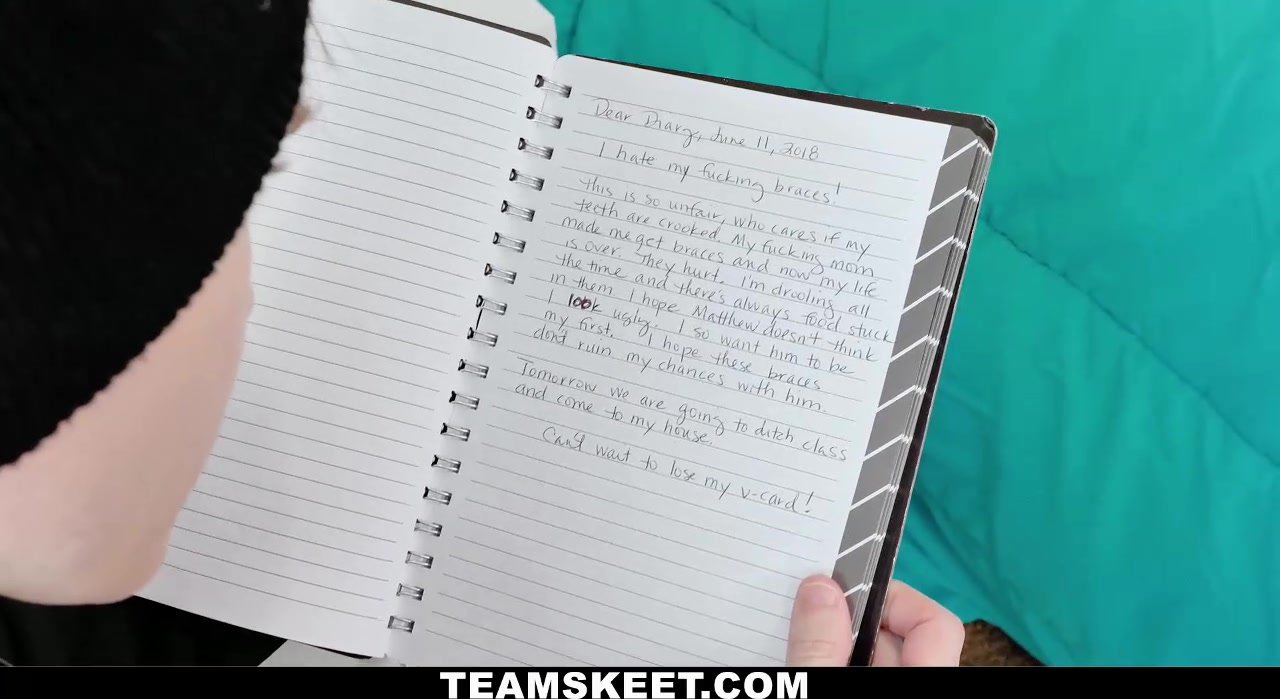 Dear Diary, June 11, 2018
I hate my fucking braces!
this is so unfair, who cares if my
teeth are crooked. My fucking mom
made me get braces and now my life
is over. They hurt. I'm drooling all
the time and there's always food stuck
in them I hope Matthew doesn't think
I look ugly. I so want him to be
my first. I hope these braces
don't ruin my chances with him.
Tomorrow we are going to ditch class
and come to my house.
Can't wait to lose my v-card!
TEAMSKEET.COM